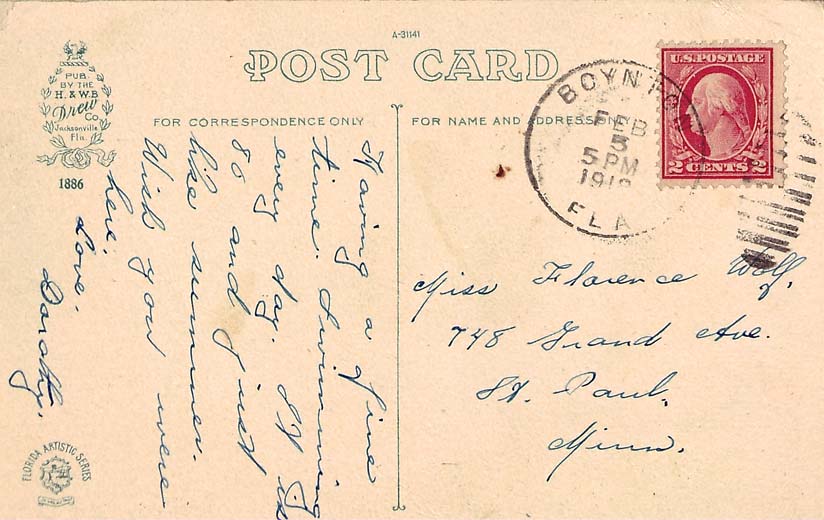 A-31141
POST CARD
PUB.
BY THE
H. & W.B.
Drew
Co
Jacksonville
Fla.
1886
FOR CORRESPONDENCE ONLY
FOR NAME AND ADDRESS ONLY
BOYNTON
FEB
5 PM
FLA
U.S. POSTAGE
2 CENTS 2
Having a fine
time. Swimming
every day. It is
80 and just
like summer.
Wish you were
here.
Love.
Dorothy.
Miss Florence Wolf.
748 Grand Ave.
St. Paul.
Minn.
FLORIDA ARTISTIC SERIES